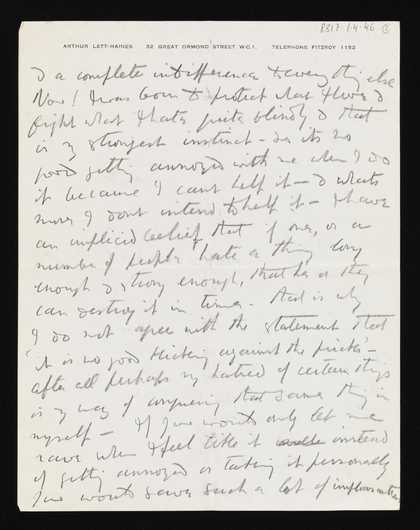 8317.1.4.46
ARTHUR LETT-HAINES 32 GREAT ORMOND STREET W.C.1. TELEPHONE FITZROY 1152
& a complete indifference to everything else
Now! I was born to protect what I love &
fight what I hate quite blindly & that
is my strongest instinct - so its no
good getting annoyed with me when I do
it because I cant help it - & whats
more I dont intend to help it - I have
an implicid belief that if one, or a
number of people hate a thing long
enough & strong enough, that he or they
can destroy it in time. That is why
I do not agree with the statement that
'it is no good kicking against the pricks' -
after all perhaps my hatred of certain things
is my way of conquering that same thing in
myself - If you would only let me
rave when I feel like it instead
of getting annoyed or taking it personally
you would save such a lot of